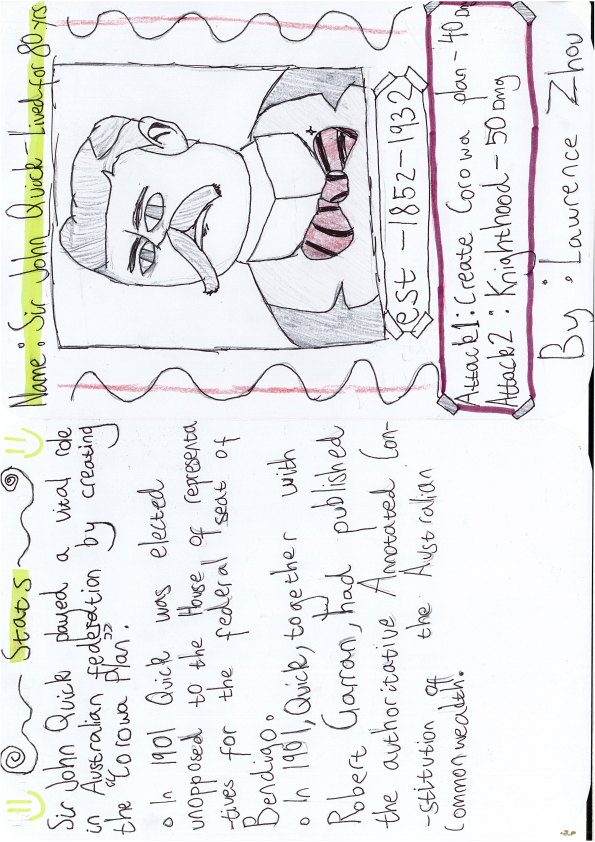 Name: Sir John Quick - Lived for 80 yrs
est - 1852-1932
Attack 1: Create Corowa plan - 40 Dmg
Attack 2: Knighthood - 50 Dmg
By: Lawrence Zhou
Stats
Sir John Quick played a vital role
in Australian federation by creating
the "Corowa Plan".
• In 1901 Quick was elected
unopposed to the House of representa
-tives for the federal seat of
Bendigo.
• In 1901, Quick, together with
Robert Garran, had published
the authoritative Annotated Con-
-stitution of the Australian
Commonwealth.